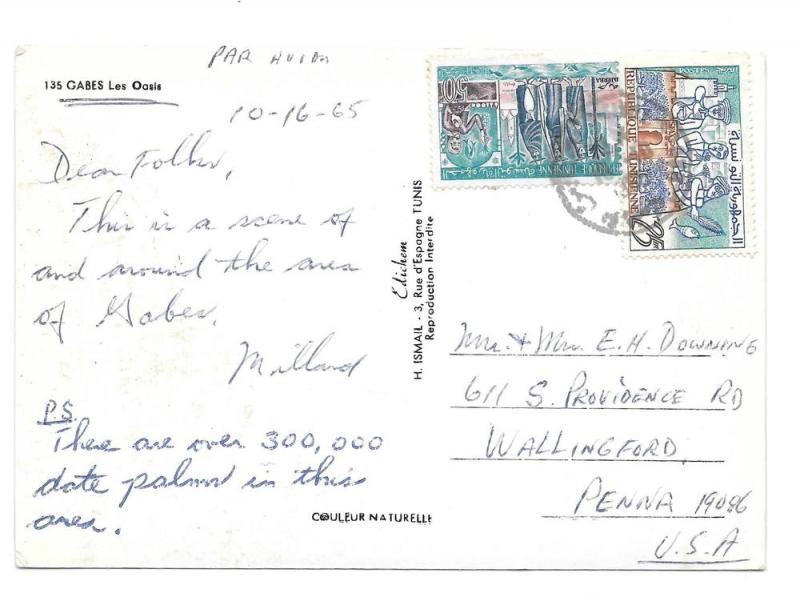 PAR AVION
135 GABES Les Oasis
10-16-65
Dear Folks,
This is a scene of
and around the area
of Gabes.
Millard
P.S.
There are over 300,000
date palms in this
area.
COULEUR NATURELLE
Edichem
H. ISMAIL - 3, Rue d'Espagne TUNIS
Reproduction Interdite
REPUBLIQUE TUNISIENNE
الجمهورية التونسية
25
REPUBLIQUE TUNISIENNE
50
DJERBA
Mr. & Mrs. E. H. DOWNING
611 S. PROVIDENCE RD
WALLINGFORD,
PENNA 19086
U.S.A